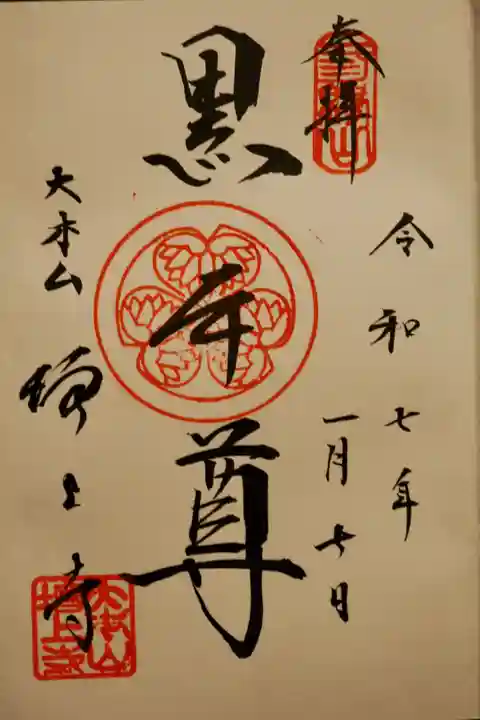 奉拝
令和七年
一月七日
黒本尊
大本山 増上寺
大本山
増上寺